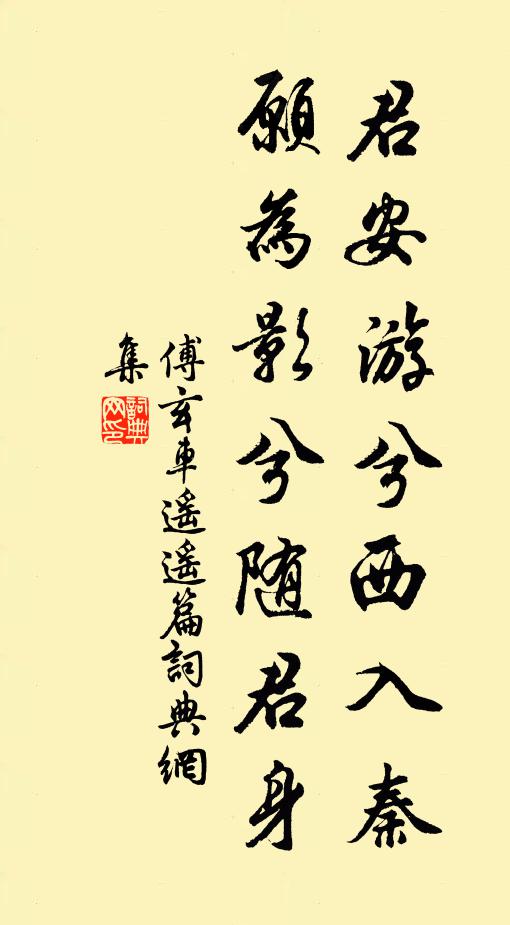 君安游兮西入秦
願為影兮随君身
傅玄車遥遥篇詞典網
集
詞典网印